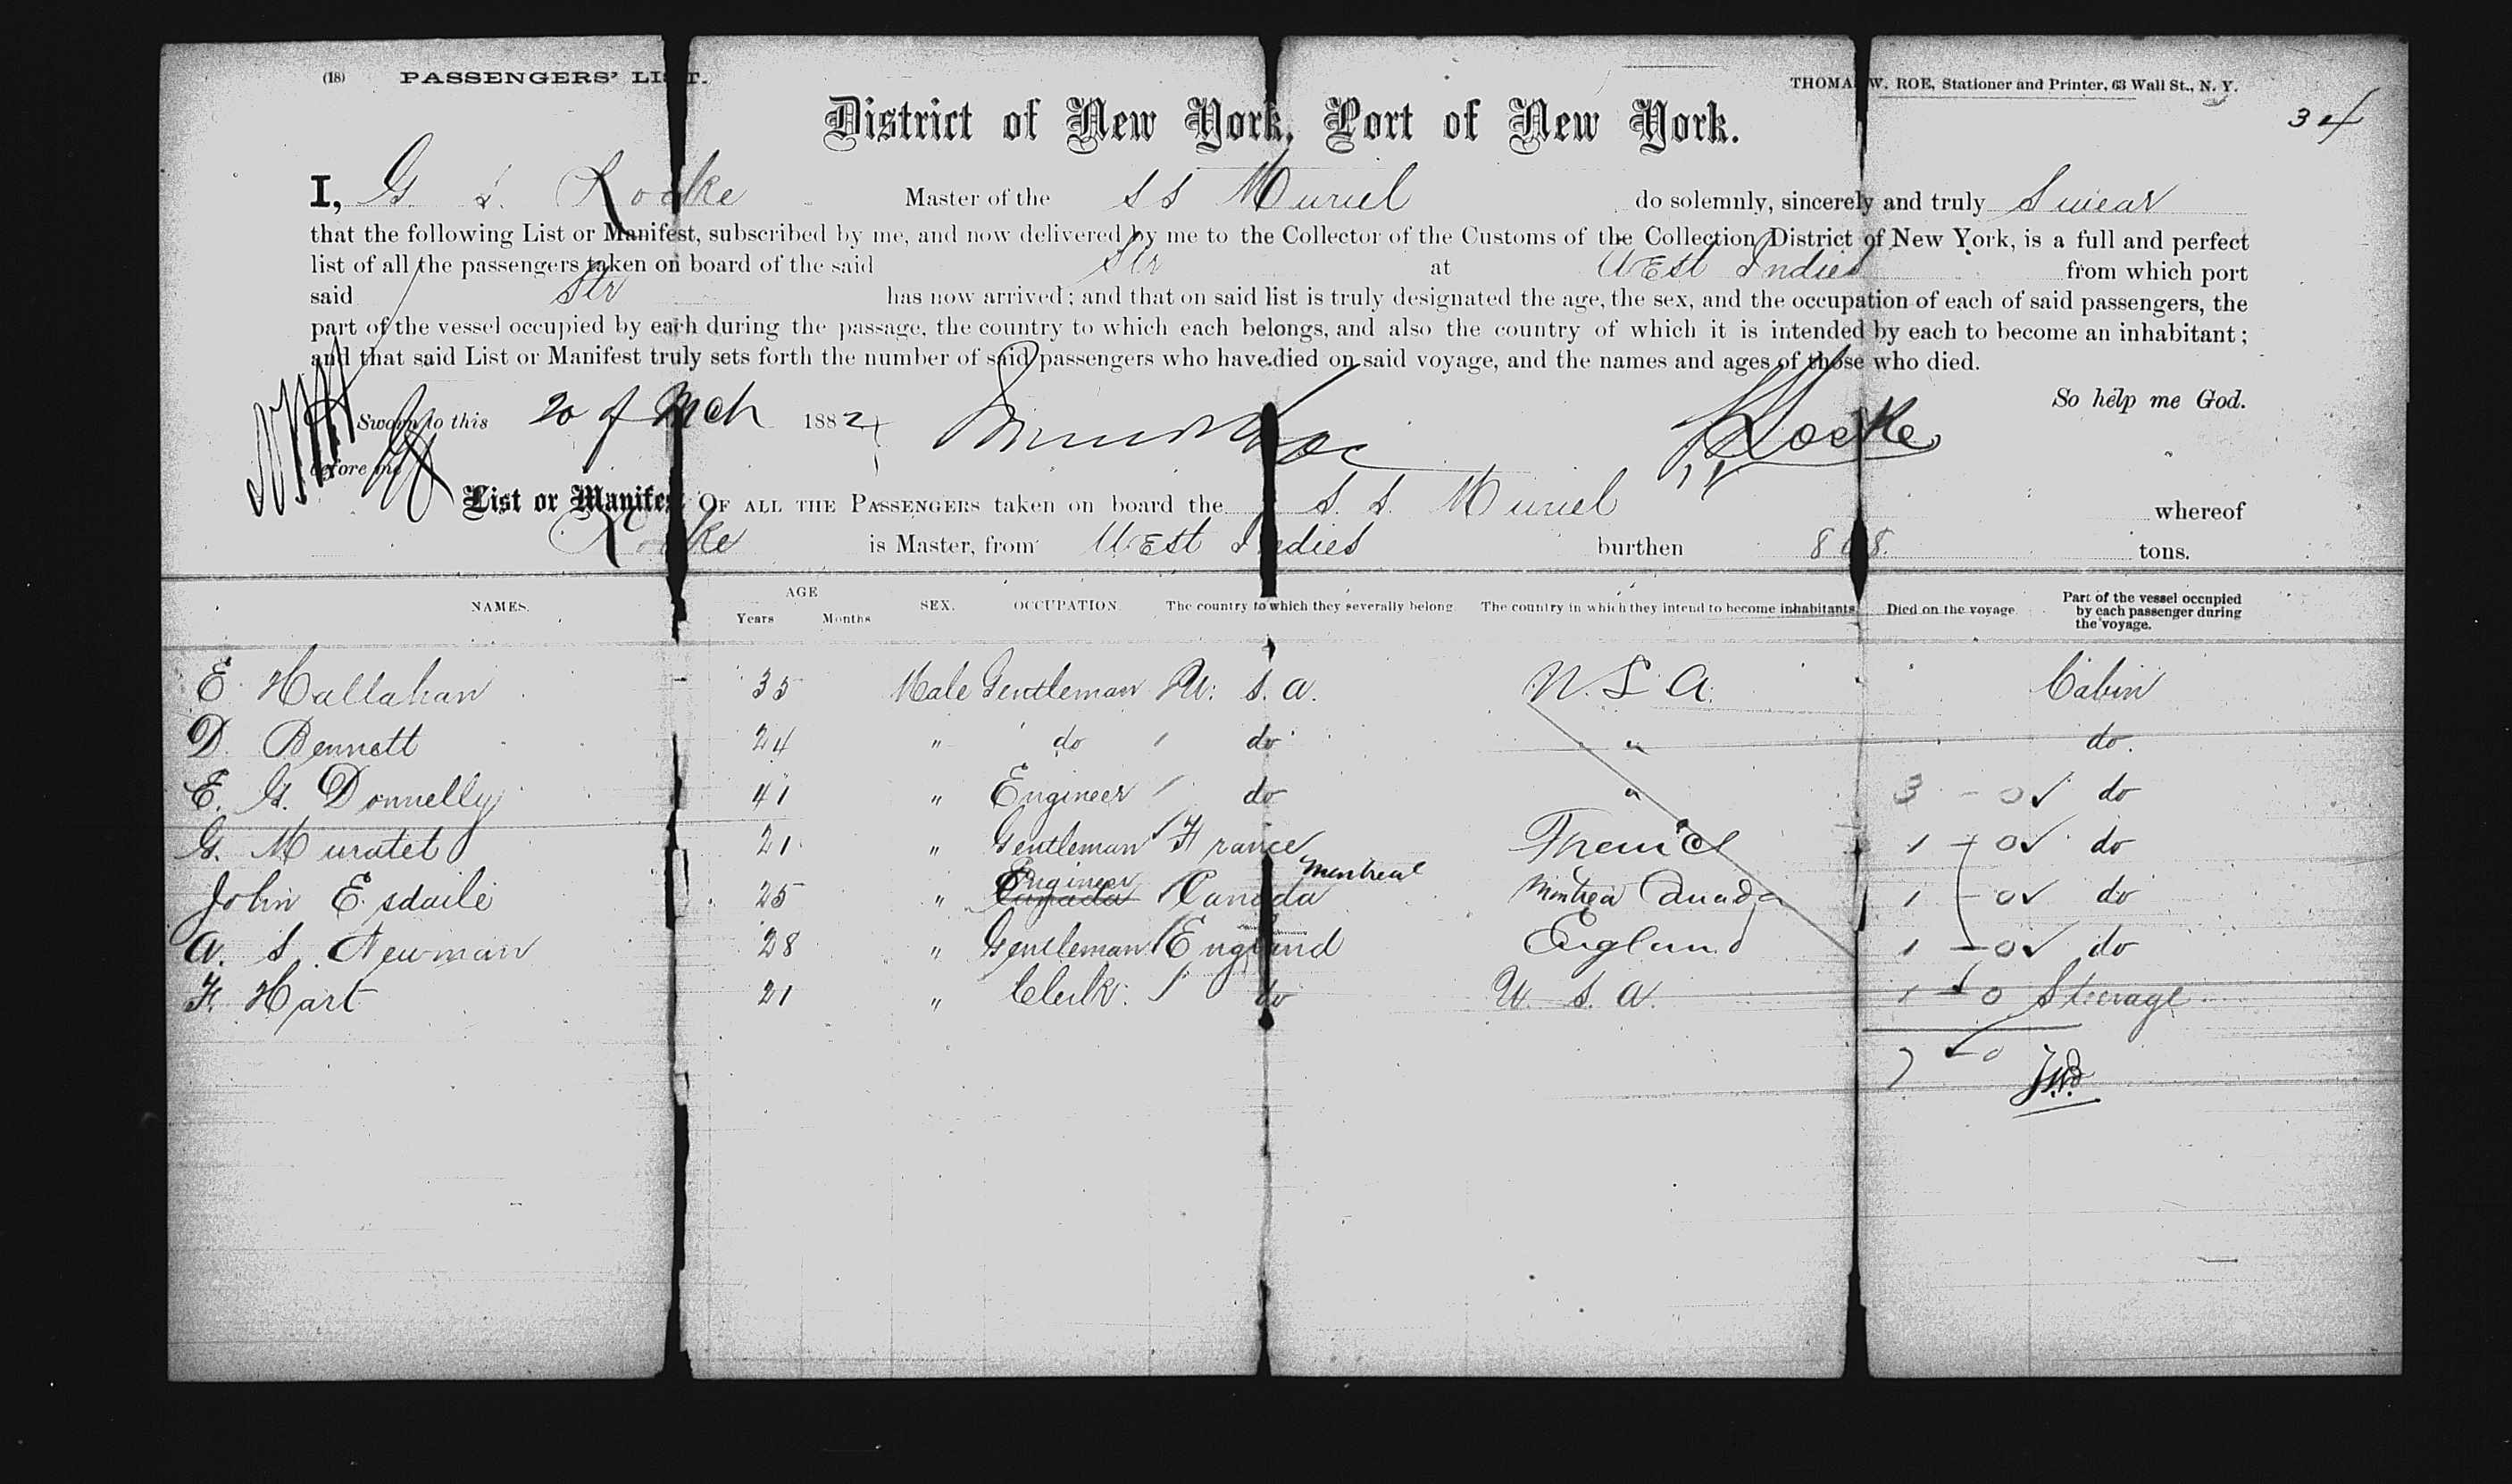 (18) PASSENGERS' LIST. THOMAS W. ROE, Stationer and Printer, 63 Wall St., N. Y.
34
District of New York, Port of New York.
I, G. S. Locke Master of the SS Muriel do solemnly, sincerely and truly Swear
that the following List or Manifest, subscribed by me, and now delivered by me to the Collector of the Customs of the Collection District of New York, is a full and perfect
list of all the passengers taken on board of the said Str at West Indies from which port
said Str has now arrived; and that on said list is truly designated the age, the sex, and the occupation of each of said passengers, the
part of the vessel occupied by each during the passage, the country to which each belongs, and also the country of which it is intended by each to become an inhabitant;
and that said List or Manifest truly sets forth the number of said passengers who have died on said voyage, and the names and ages of those who died.
So help me God.
Sworn to this 20 of Mch 1882 Locke
before me
List or Manifest OF ALL THE PASSENGERS taken on board the S. S. Muriel whereof
Locke is Master, from West Indies burthen tons.
NAMES. AGE Years Months SEX. OCCUPATION. The country to which they severally belong The country in which they intend to become inhabitants Died on the voyage Part of the vessel occupied by each passenger during the voyage.
E Hallahan 35 Male Gentleman U. S. A. U. S. A. Cabin
D. Bennett 24 " do do " do.
E. G. Donnelly 41 " Engineer do " 3 - 0 ✓ do
G. Muratet 21 " Gentleman France France 1 - 0 ✓ do
John Esdaile 25 " Canada Engineer Canada Montreal Montreal Canada 1 - 0 ✓ do
A. S. Newman 28 " Gentleman England England 1 - 0 ✓ do
F. Hart 21 " Clerk. do U. S. A. 1 - 0 Steerage
7 - 0